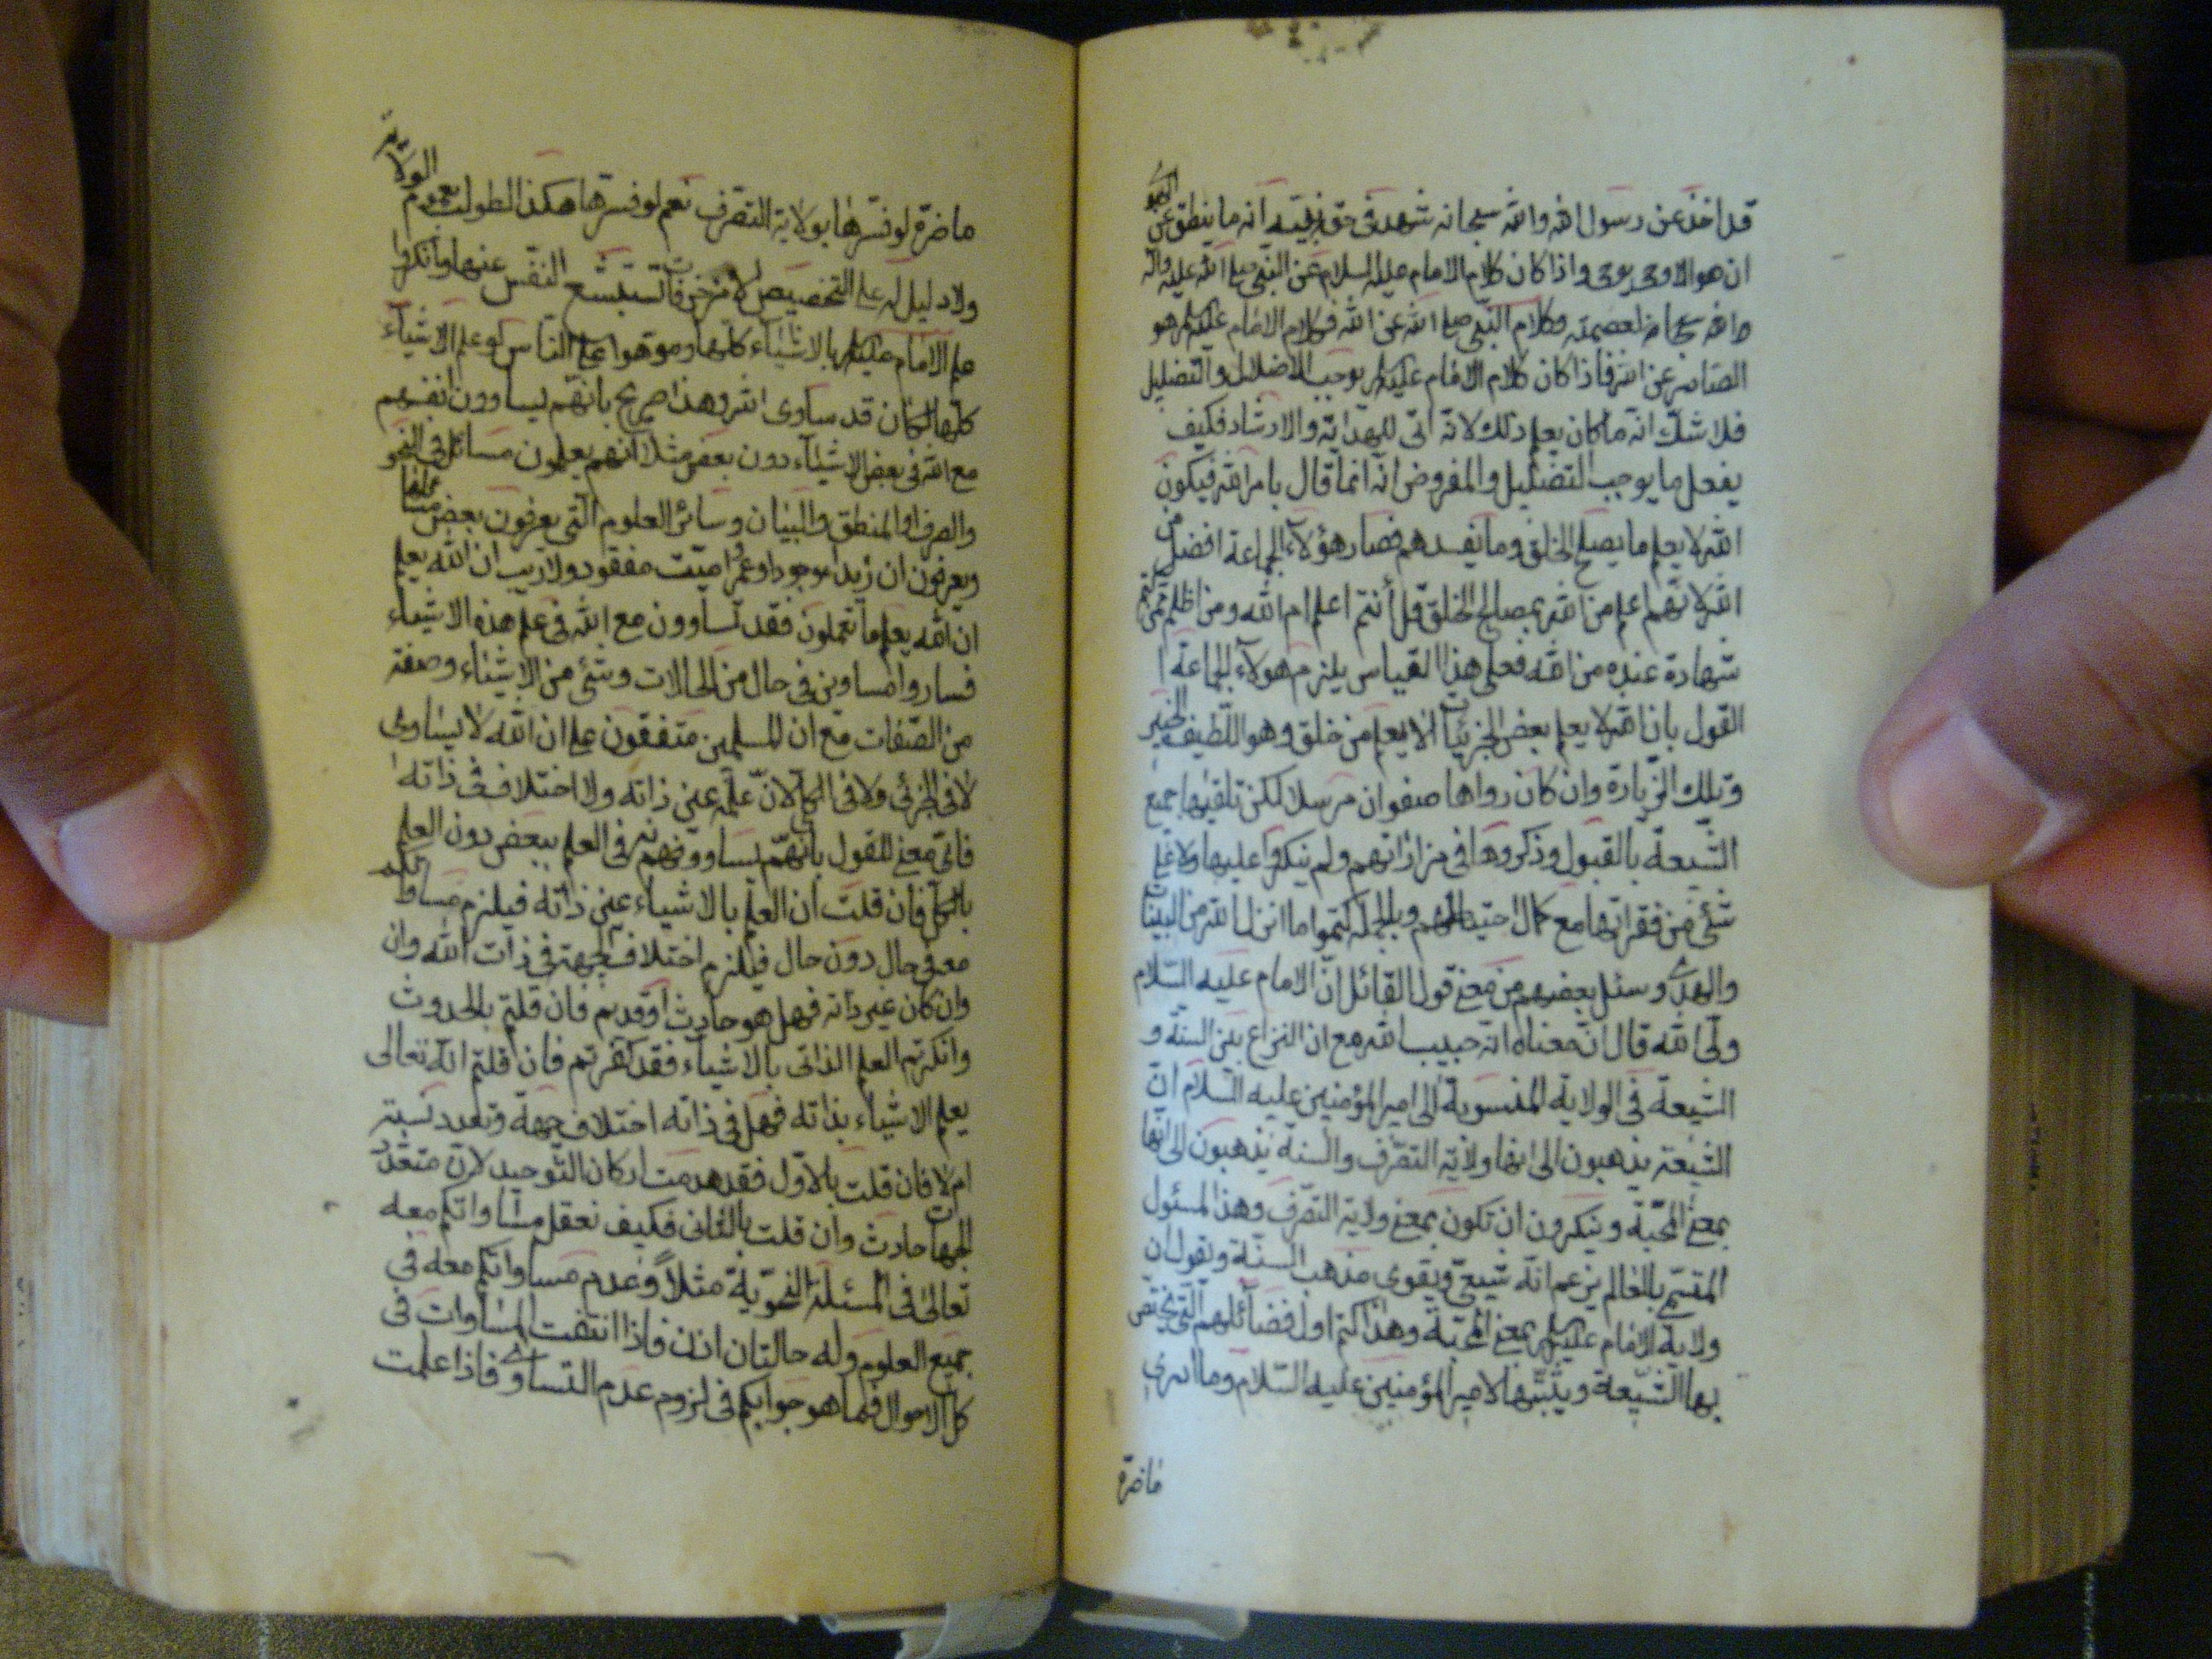 قد اخذ عن رسول الله والله سبحانه شهد في حق نبيه انه ما ينطق عن الهوى
ان هو الا وحي يوحى واذا كان كلام الامام عليه السلام عن النبي صلى الله عليه وآله
والله سبحانه لعصمته وكلام النبي صلى الله عن الله فكلام الامام عليه السلم هو
الصادر عن الله فاذا كان كلام الامام عليه السلم يوجب الاضلال والتضليل
فلا شك انه ما كان يعلم ذلك لانه اتى للهداية والارشاد فكيف
يفعل ما يوجب التضليل والمفروض انه انما قال بامر الله فيكون
الله لا يعلم ما يصلح الخلق وما يفسدهم فصار هؤلاء الجماعة افضل من
الله لانهم اعلم من الله بمصالح الخلق قل أنتم اعلم ام الله ومن اظلم ممن كتم
شهادة عنده من الله فعلى هذا القياس يلزم هولاء الجماعة
القول بان الله لا يعلم بعض الجزئيات الا يعلم من خلق وهو اللطيف الخبير
وتلك الزيارة وان كان رواها صفوان مرسلا لكن تلقيها جميع
الشيعة بالقبول وذكروها في مزاراتهم ولم ينكروا عليها ولا على
شئ من فقراتها مع كمال احتياطهم وبالجملة كتموا ما انزل الله من البينات
والهدى وسئل بعضهم من معنى قول القائل ان الامام عليه السلام
ولي الله قال ان معناه انه حبيب الله مع ان النزاع بين السنة و
الشيعة في الولاية المنسوبة الى امير المؤمنين عليه السلام ان
الشيعة يذهبون الى انها ولاية التصرف والسنة يذهبون الى انها
بمعنى المحبة وينكرون ان تكون بمعنى ولاية التصرف وهذا المسئول
المقسم بالعالم يزعم انه شيعي ويقوى مذهب السنة ويقول ان
ولاية الامام عليه السلم بمعنى المحبة وهذا كتم اول فضائلهم التي يختص
بها الشيعة ويثبتها لامير المؤمنين عليه السلام وما ادري
ما ضره
ما ضره لو فسرها بولاية التصرف نعم لو فسرها هكذا لطولب بعموم الولاية
ولا دليل له على التخصيص النفس عنها وانكروا
علم الامام عليه السلم بالاشياء كلها وموهوا على الناس لو علم الاشياء
كلها لكان قد ساوى الله وهذا صريح بانهم يساوون انفسهم
مع الله في بعض الاشياء دون بعض مثلا انهم يعلمون مسائل في النحو
والصرف والمنطق والبيان وسائر العلوم التي يعرفون بعض مسائلها
ويعرفون ان زيدا موجود او عمرا ميت مفقود ولا ريب ان الله يعلم
ان الله يعلم ما تعملون فقد تساوون مع الله في علم هذه الاشياء
فساروا مساوين في حال من الحالات وشئ من الاشياء وصفة
من الصفات مع ان المسلمين متفقون على ان الله لا يساوى
لا في الجزئي ولا في الكلي لان علمه عين ذاته ولا اختلاف في ذاته
فاي معنى للقول بانهم يساوونه في العلم ببعض دون العلم
بالكل فان قلت ان العلم بالاشياء عين ذاته فيلزم مساواتكم
معه في حال دون حال فيلزم اختلاف الجهة في ذات الله وان
وان كان غير ذاته فهل هو حادث او قديم فان قلتم بالحدوث
وانكرتم العلم الذاتي بالاشياء فقد كفرتم فان قلتم الله تعالى
يعلم الاشياء بذاته فهل في ذاته اختلاف جهة وتعدد نسبة
ام لا فان قلت بالاول فقد هدمت اركان التوحيد لان متعدد
الجهات حادث وان قلت بالثاني فكيف نعقل مساواتكم معه
تعالى في المسئلة النحوية مثلاً وعدم مساواتكم معه في
جميع العلوم وله حالتان اذن فاذا انتفت المساوات في
كل الاحوال فما هو جوابكم في لزوم عدم التساوي فاذا علمت